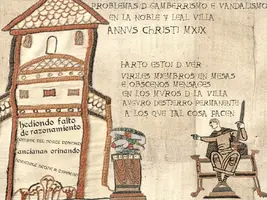 PROBLEMAS D GAMBERRISMO E VANDALISMO
EN LA NOBLE Y LEAL VILLA
ANNVS CHRISTI MXIX
HARTO ESTOI D VER
VIRILES MIEMBROS EN MESAS
E OBSCENOS MENSAGES
EN LOS MVROS D LA VILLA
AVGVRO DESTIERRO PERMANENTE
A LOS QVE TAL COSA FACEN
hediondo falto
de razonamiento
ancianas orinando